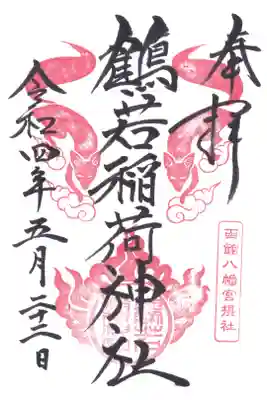 奉拝
函館八幡宮摂社
鶴若稲荷神社
令和四年五月二十二日